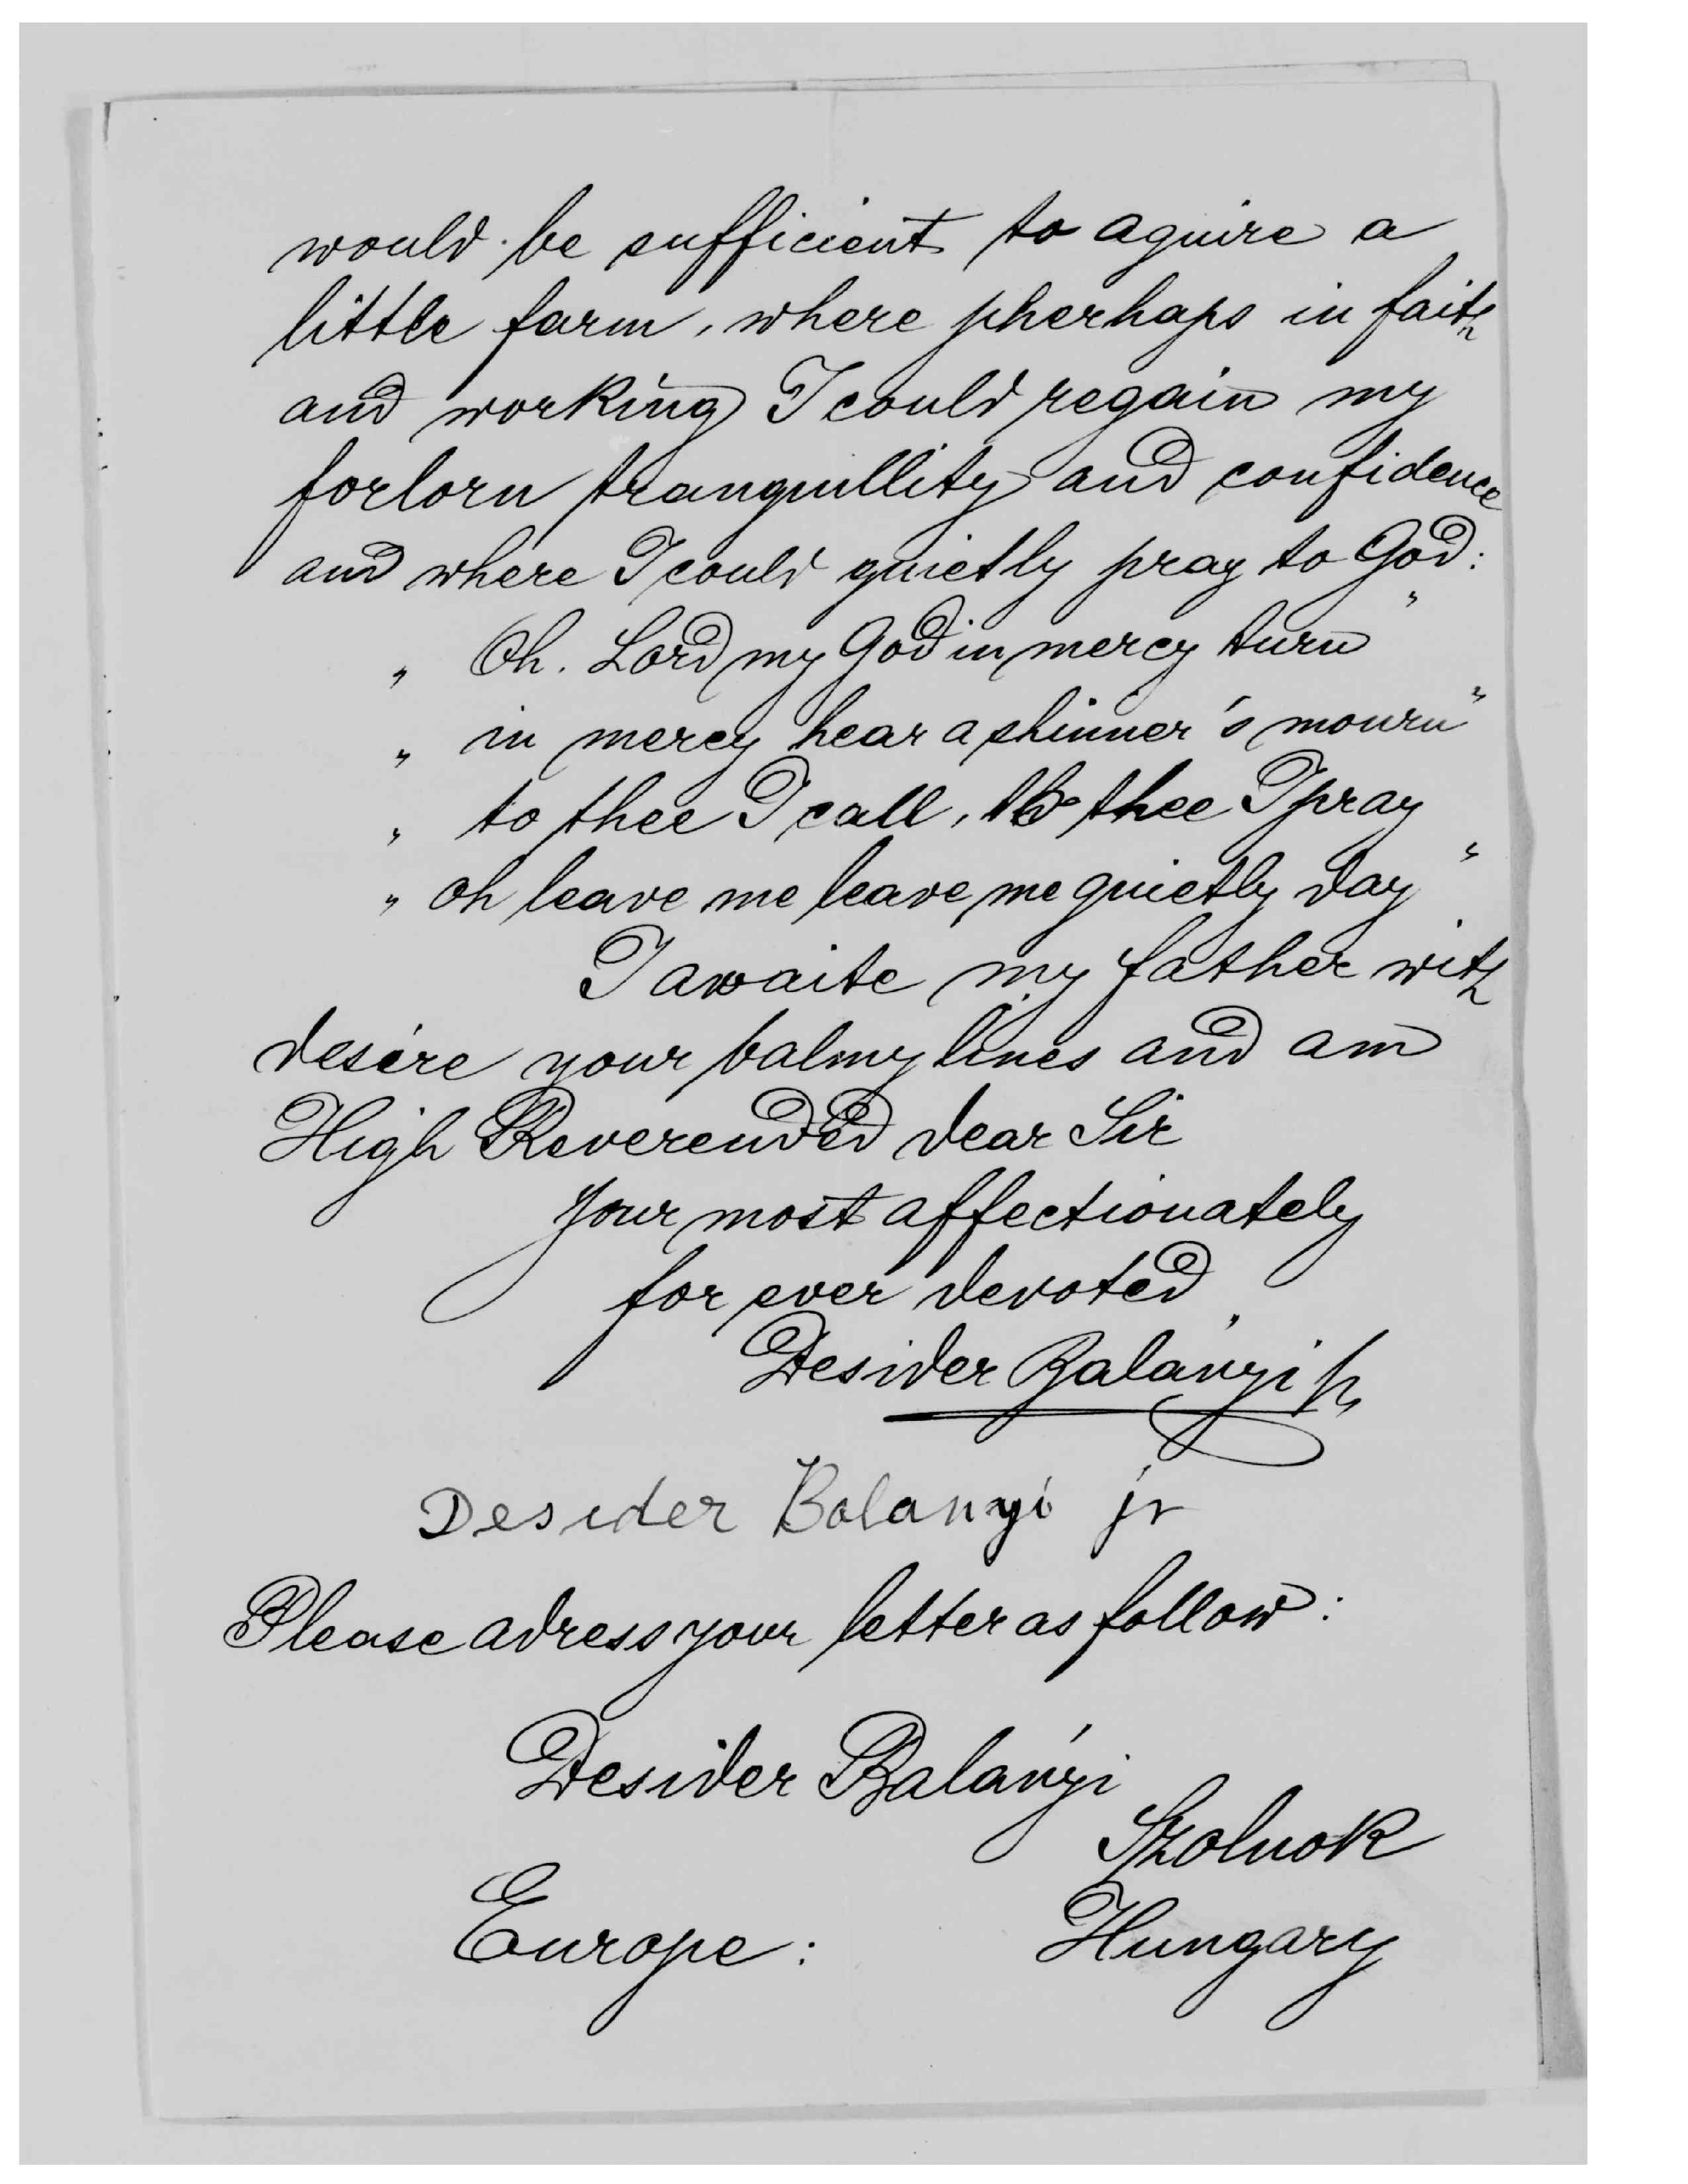 would be sufficient to aguire a
little farm, where pherhaps in faith
and working I could regain my
forlorn tranquillity and confidence
and where I could quietly pray to God:
„ Oh. Lord my God in mercy turn "
„ in mercy hear a shinner's mourn "
„ to thee I call, to thee I pray
„ oh leave me leave me quietly day "
I awaite my father with
desire your balmy lines and am
High Reverended dear Sir
Your most affectionately
for ever devoted
Desider Balányi jr
Desider Bolanyi jr
Please adress your letter as follow:
Desider Balányi
Szolnok
Europe: Hungary